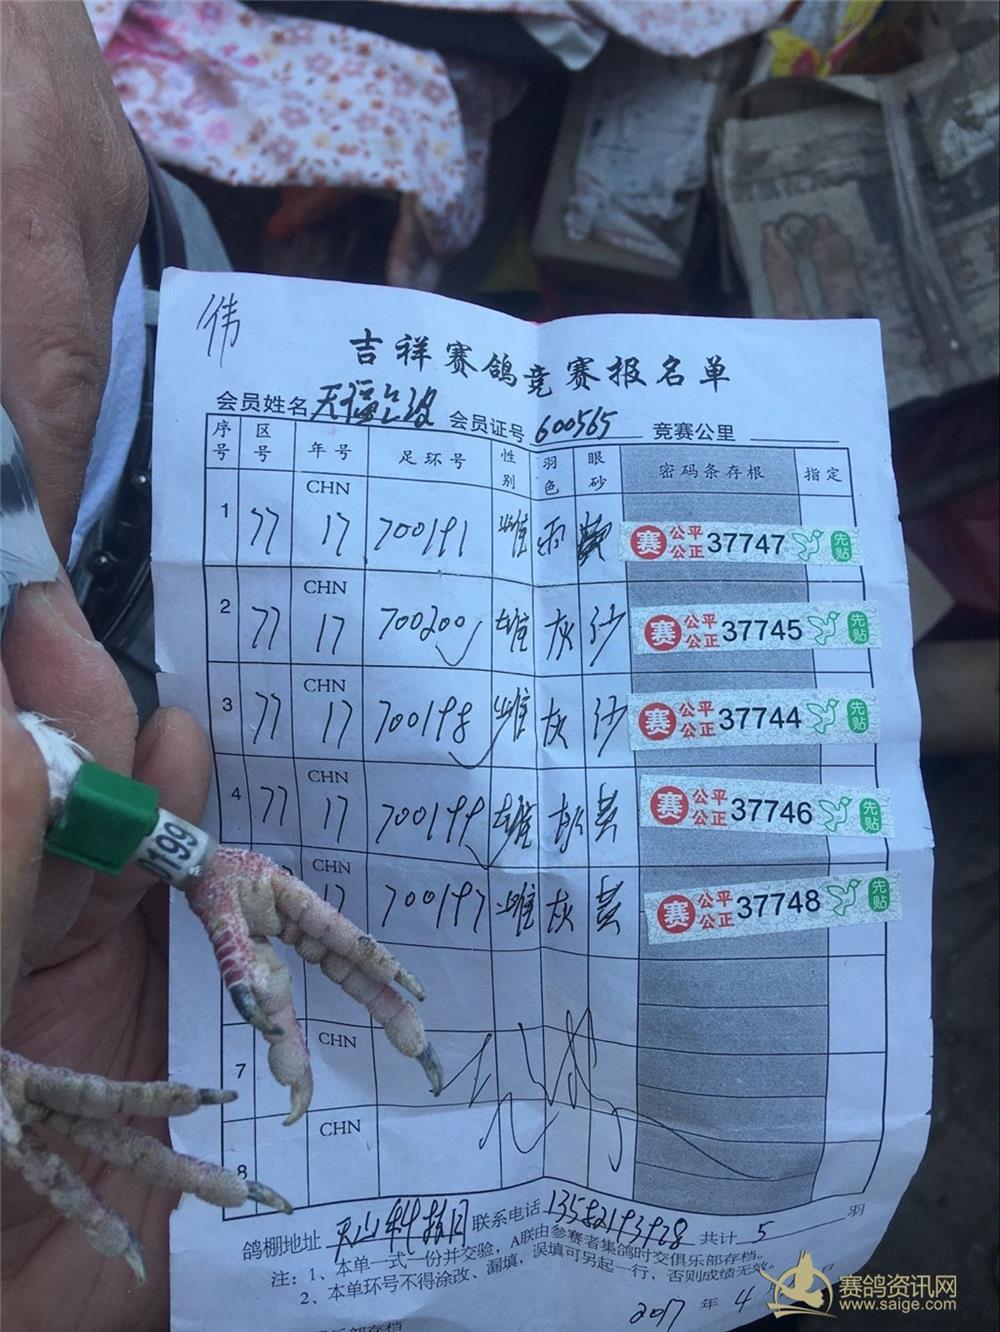 伟
吉祥赛鸽竞赛报名单
会员姓名 会员证号 600565 竞赛公里
序号 区号 年号 足环号 性别 羽色 眼砂 密码条存根 指定
1 77 CHN 17 700191 雌 雨 黄 赛 公平公正 37747 先贴
2 77 CHN 17 700200 雄 灰 沙 赛 公平公正 37745 先贴
3 77 CHN 17 700198 雌 灰 沙 赛 公平公正 37744 先贴
4 77 CHN 17 700199 雄 灰 黄 赛 公平公正 37746 先贴
CHN 17 700197 雌 灰 黄 赛 公平公正 37748 先贴
0199
7 CHN
8 CHN
鸽棚地址 联系电话 共计 5 羽
注：1、本单一式一份并交验，A联由参赛者集鸽时交俱乐部存档。
2、本单环号不得涂改、漏填，误填可另起一行，否则成绩无效。
2017 年 4
俱乐部存档
赛鸽资讯网
www.saige.com